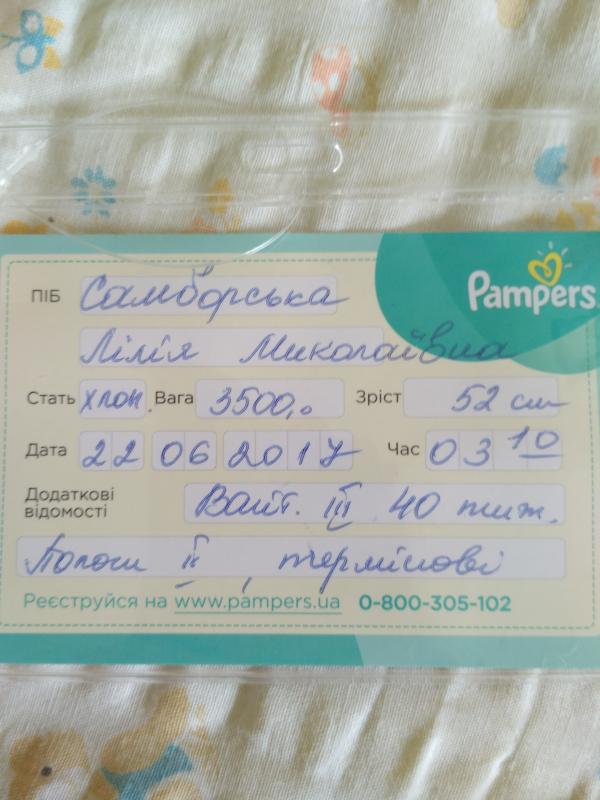 ПІБ Самборська
Pampers
Лілія Миколаївна
Стать хлоп. Вага 3500,0 Зріст 52 см
Дата 22 06 2017 Час 03 10
Додаткові відомості Вагіт. III 40 тиж.
Пологи II, термінові
Реєструйся на www.pampers.ua 0-800-305-102